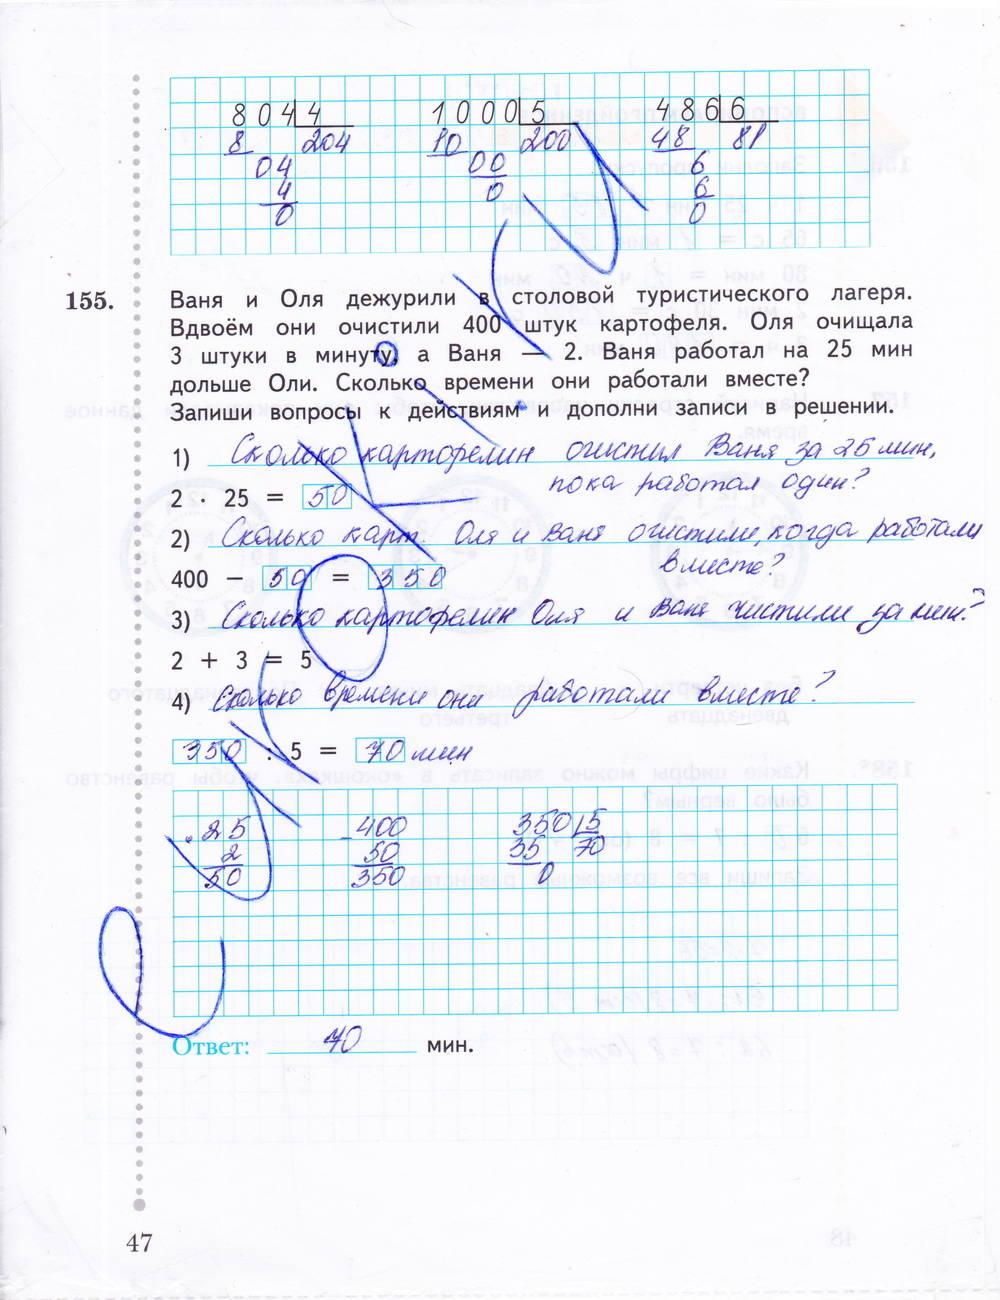 804 4 1000 5 486 6
8 204 10 200 48 81
04 00 6
4 0 6
0 0
155. Ваня и Оля дежурили в столовой туристического лагеря.
Вдвоём они очистили 400 штук картофеля. Оля очищала
3 штуки в минуту, а Ваня — 2. Ваня работал на 25 мин
дольше Оли. Сколько времени они работали вместе?
Запиши вопросы к действиям и дополни записи в решении.
1) Сколько картофелин очистил Ваня за 25 мин,
пока работал один?
2 · 25 = 50
2) Сколько карт. Оля и Ваня очистили, когда работали
вместе?
400 − 50 = 350
3) Сколько картофелин Оля и Ваня чистили за мин.?
2 + 3 = 5
4) Сколько времени они работали вместе?
350 : 5 = 70 мин
25 400 350 5
2 50 35 70
50 350 0
Ответ: 70 мин.
47